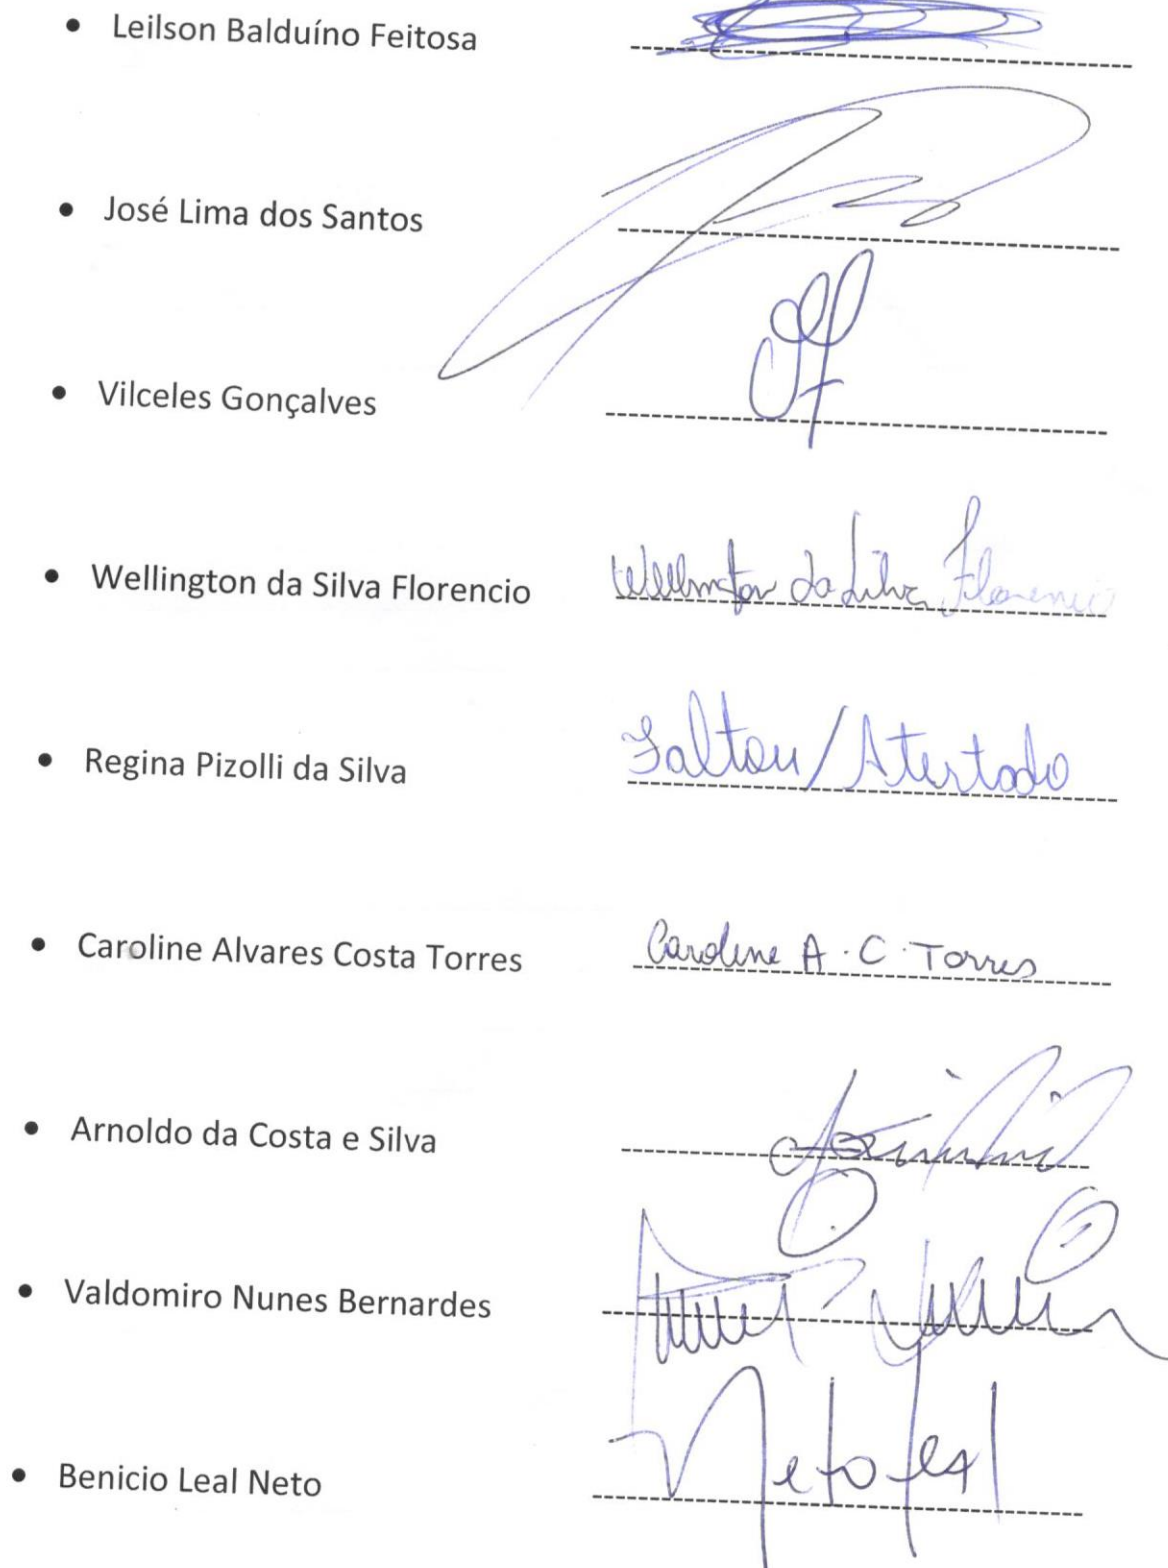 • Leilson Balduíno Feitosa
• José Lima dos Santos
• Vilceles Gonçalves
• Wellington da Silva Florencio Wellington da Silva Florencio
• Regina Pizolli da Silva Faltou/Atestado
• Caroline Alvares Costa Torres Caroline A. C. Torres
• Arnoldo da Costa e Silva
• Valdomiro Nunes Bernardes
• Benicio Leal Neto Neto Leal